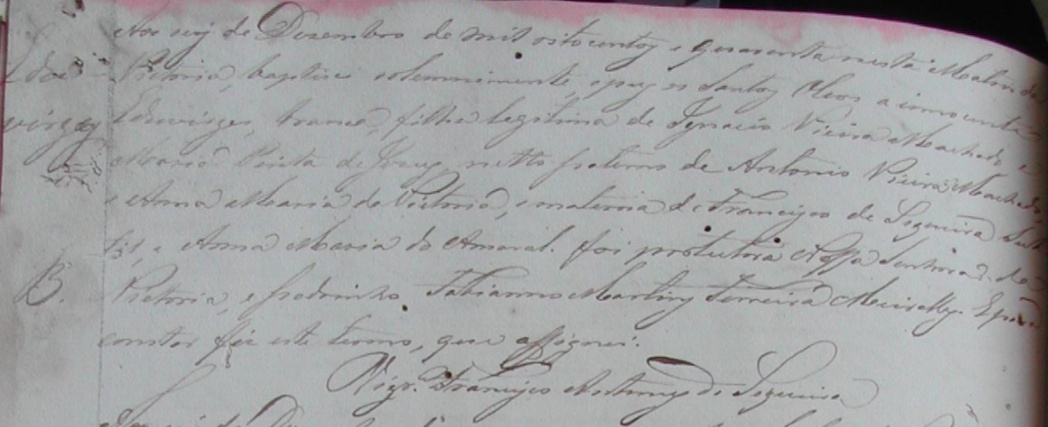 Aos seis de Dezembro de mil oitocentos e quarenta nesta Matriz da
Edu- Victoria, baptisei solemnemente, e puz os Santos Oleos a innocente
virges Eduvirges, branca, filha legitima de Ignacio Vieira Machado e
Maria Pinta de Jesus, netto paterno de Antonio Vieira Machado,
e Anna Maria da Victoria, e materna de Francisco de Siqueira
e Anna Maria do Amaral. foi protectora Nossa Senhora da
B. Victoria, e padrinho Fabianno Martins Ferreira Meirelles. E para
constar fiz este termo, que assignei.
Vigr.º Francisco Antunes de Siqueira